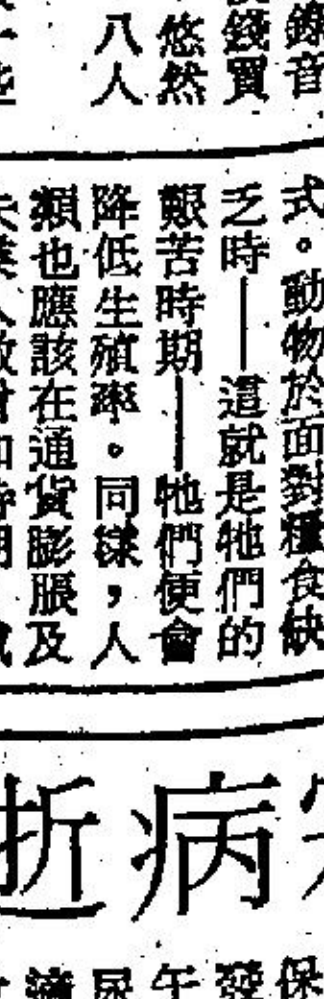 錄音
錢買
悠然
八人
式。動物於面對糧食缺
乏時——這就是牠們的
艱苦時期——牠們便會
降低生殖率。同樣，人
類也應該在通貨膨脹及
病逝
保
發
午
尿